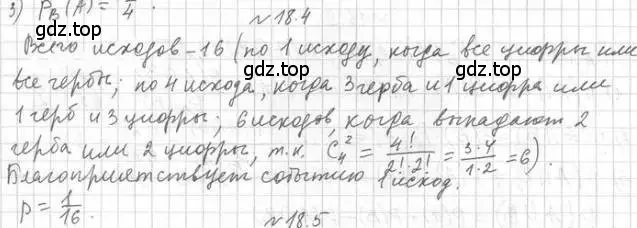 3) P_B(A) = 1/4.
№18.4
Всего исходов - 16 (по 1 исходу, когда все цифры или
все гербы; по 4 исхода, когда 3 герба и 1 цифра или
1 герб и 3 цифры; 6 исходов, когда выпадают 2
герба или 2 цифры, т.к. C_4^2 = 4!/(2!·2!) = (3·4)/(1·2) = 6).
Благоприятствует событию 1 исход.
p = 1/16.
№18.5
gdz.top
gdz.top
gdz.top
gdz.top
gdz.top
gdz.top